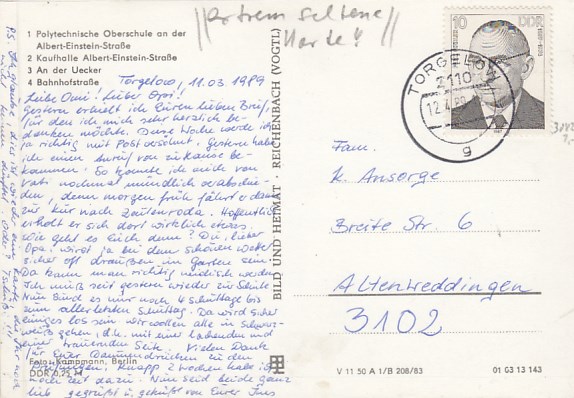 extrem seltene
Karte!
1 Polytechnische Oberschule an der
Albert-Einstein-Straße
2 Kaufhalle Albert-Einstein-Straße
3 An der Uecker
4 Bahnhofstraße
Torgelow, 11.03.1989
Liebe Omi! Lieber Opi!
Gestern erhielt ich Euren lieben Brief,
für den ich mich sehr herzlich be-
danken möchte. Diese Woche werde ich
ja richtig mit Post verwöhnt. Gestern habe
ich einen von zu Hause be-
kommen. So konnte ich mich von
Vati nochmal mündlich verabschie-
den, denn morgen früh fährt er dann
zur Kur nach Zeulenroda. Hoffentlich
erholt er sich dort wirklich etwas.
Wie geht es Euch denn? Du, lieber
Opa, wirst ja bei dem schönen Wetter
sicher oft draußen im Garten sein.
Da kann man richtig neidisch werden.
Ich muß seit gestern wieder zur Schule
Nun sind es nur noch 4 Schultage bis
zum allerletzten Schultag. Da wird sicher
einiges los sein, wir wollen alle in Schwarz-
weiß gehen, d.h. mit einer lachenden und
einer trauernden Seite. Vielen Dank
für Euer Daumendrücken zu den
Prüfungen. Knapp 2 Wochen habe ich
noch Zeit dazu. Nun seid beide ganz
lieb gegrüßt u. geküßt von Eurer Ines
PS: Ich glaube,
Foto: Kampmann, Berlin
DDR 0,25 M
BILD UND HEIMAT · REICHENBACH (VOGTL)
10 DDR
TORGELOW
2110
12.4.89
g
Fam.
K. Ansorge
Breite Str. 6
Altenweddingen
3102
V 11 50 A 1/B 208/83
01 G3 13 143